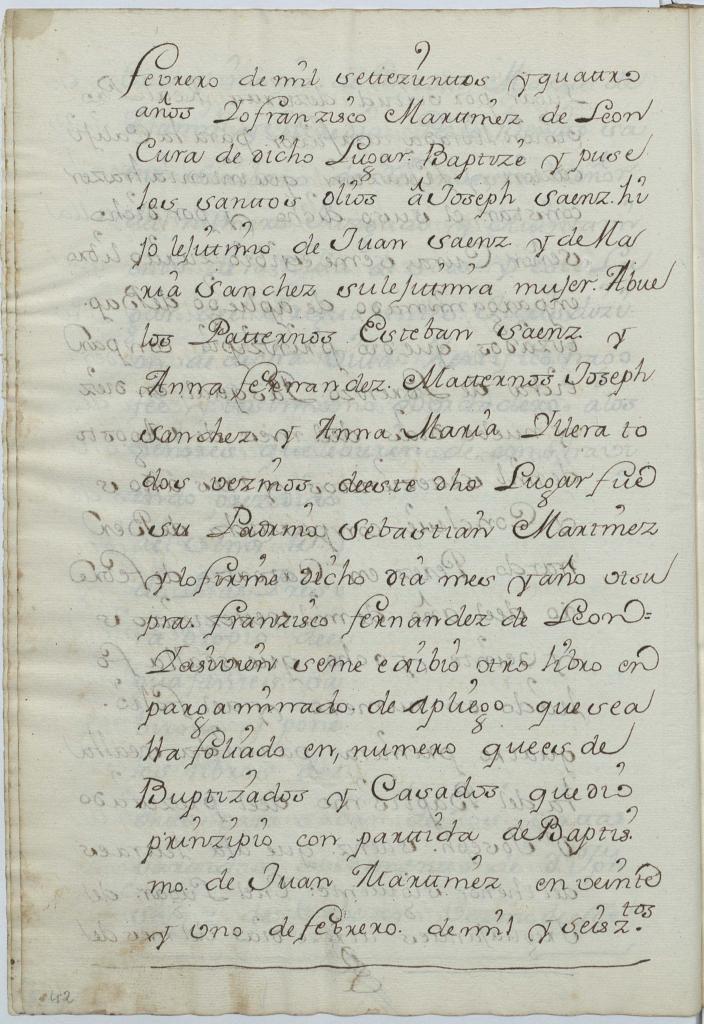 febrero de mil settezientos y quattro
años Yo franzisco Martinez de Leon
Cura de dicho Lugar Baptize y puse
los santtos olios â Joseph Saenz. hi
jo lejittimo de Juan Saenz y de Ma
ria Sanchez su lejittima mujer. Abue
los Patternos Esteban Saenz y
Anna fernandez. Matternos Joseph
Sanchez y Anna Maria Ylera to
dos vezinos deeste dho Lugar fue
su Padrino Sebastian Martinez
y lo firme dicho dia mes y año vt su
pra. franzisco fernandez de Leon=
Yasimen seme exibio otro libro en
pargaminado. de apliego que sea
lla foliado en, numero que es de
Buptizados y Casados que dio
prinzipio con partida de Baptis.
mo. de Juan Martinez en veinte
y uno de febrero. de mil y seisztos.
452